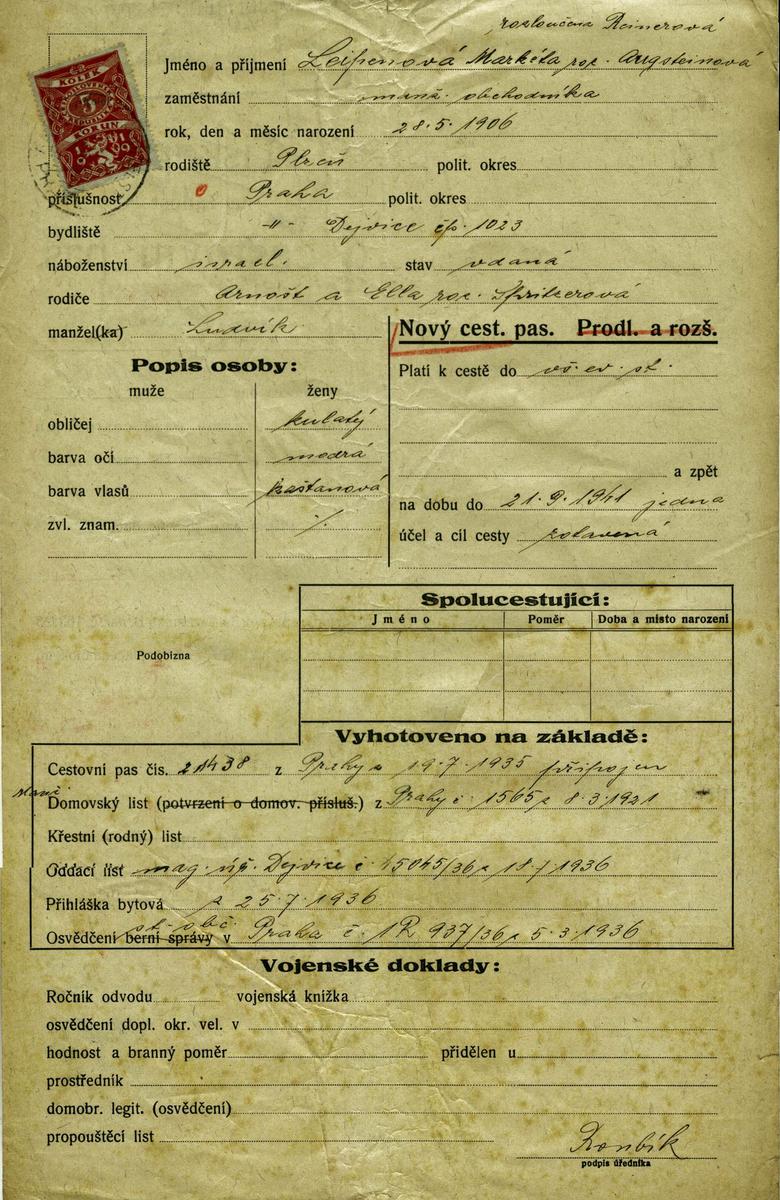 rozloučena Reinerová
Jméno a příjmení Leipenová Markéta roz. Augsteinová
zaměstnání manž. obchodníka
rok, den a měsíc narození 28.5.1906
rodiště Plzeň polit. okres
příslušnost Praha polit. okres
bydliště -"- Dejvice čp. 1023
náboženství israel. stav vdaná
rodiče Arnošt a Ella roz. Spritzerová
manžel(ka) Ludvík
Nový cest. pas. Prodl. a rozš.
Popis osoby:
muže ženy
Platí k cestě do vš. ev. st.
obličej kulatý
barva očí modrá
a zpět
barva vlasů kaštanová
na dobu do 21.9.1941 jedna
zvl. znam. ·/·
účel a cíl cesty zotavená
Spolucestující:
Jméno Poměr Doba a místo narození
Podobizna
Vyhotoveno na základě:
Cestovní pas čís. 21438 z Prahy z 19.7.1935 připojen
Domovský list (potvrzení o domov. přísluš.) z Prahy č. 1565 z 8.3.1921
Křestní (rodný) list
Oddací list mag. úř. Dejvice č. 45045/36 z 18.7.1936
Přihláška bytová z 25.7.1936
st. obč.
Osvědčení berní správy v Praha č. 1R 937/36 z 5.3.1936
Vojenské doklady:
Ročník odvodu vojenská knížka
osvědčení dopl. okr. vel. v
hodnost a branný poměr přidělen u
prostředník
domobr. legit. (osvědčení)
propouštěcí list
podpis úředníka
KOLEK
5
KORUN